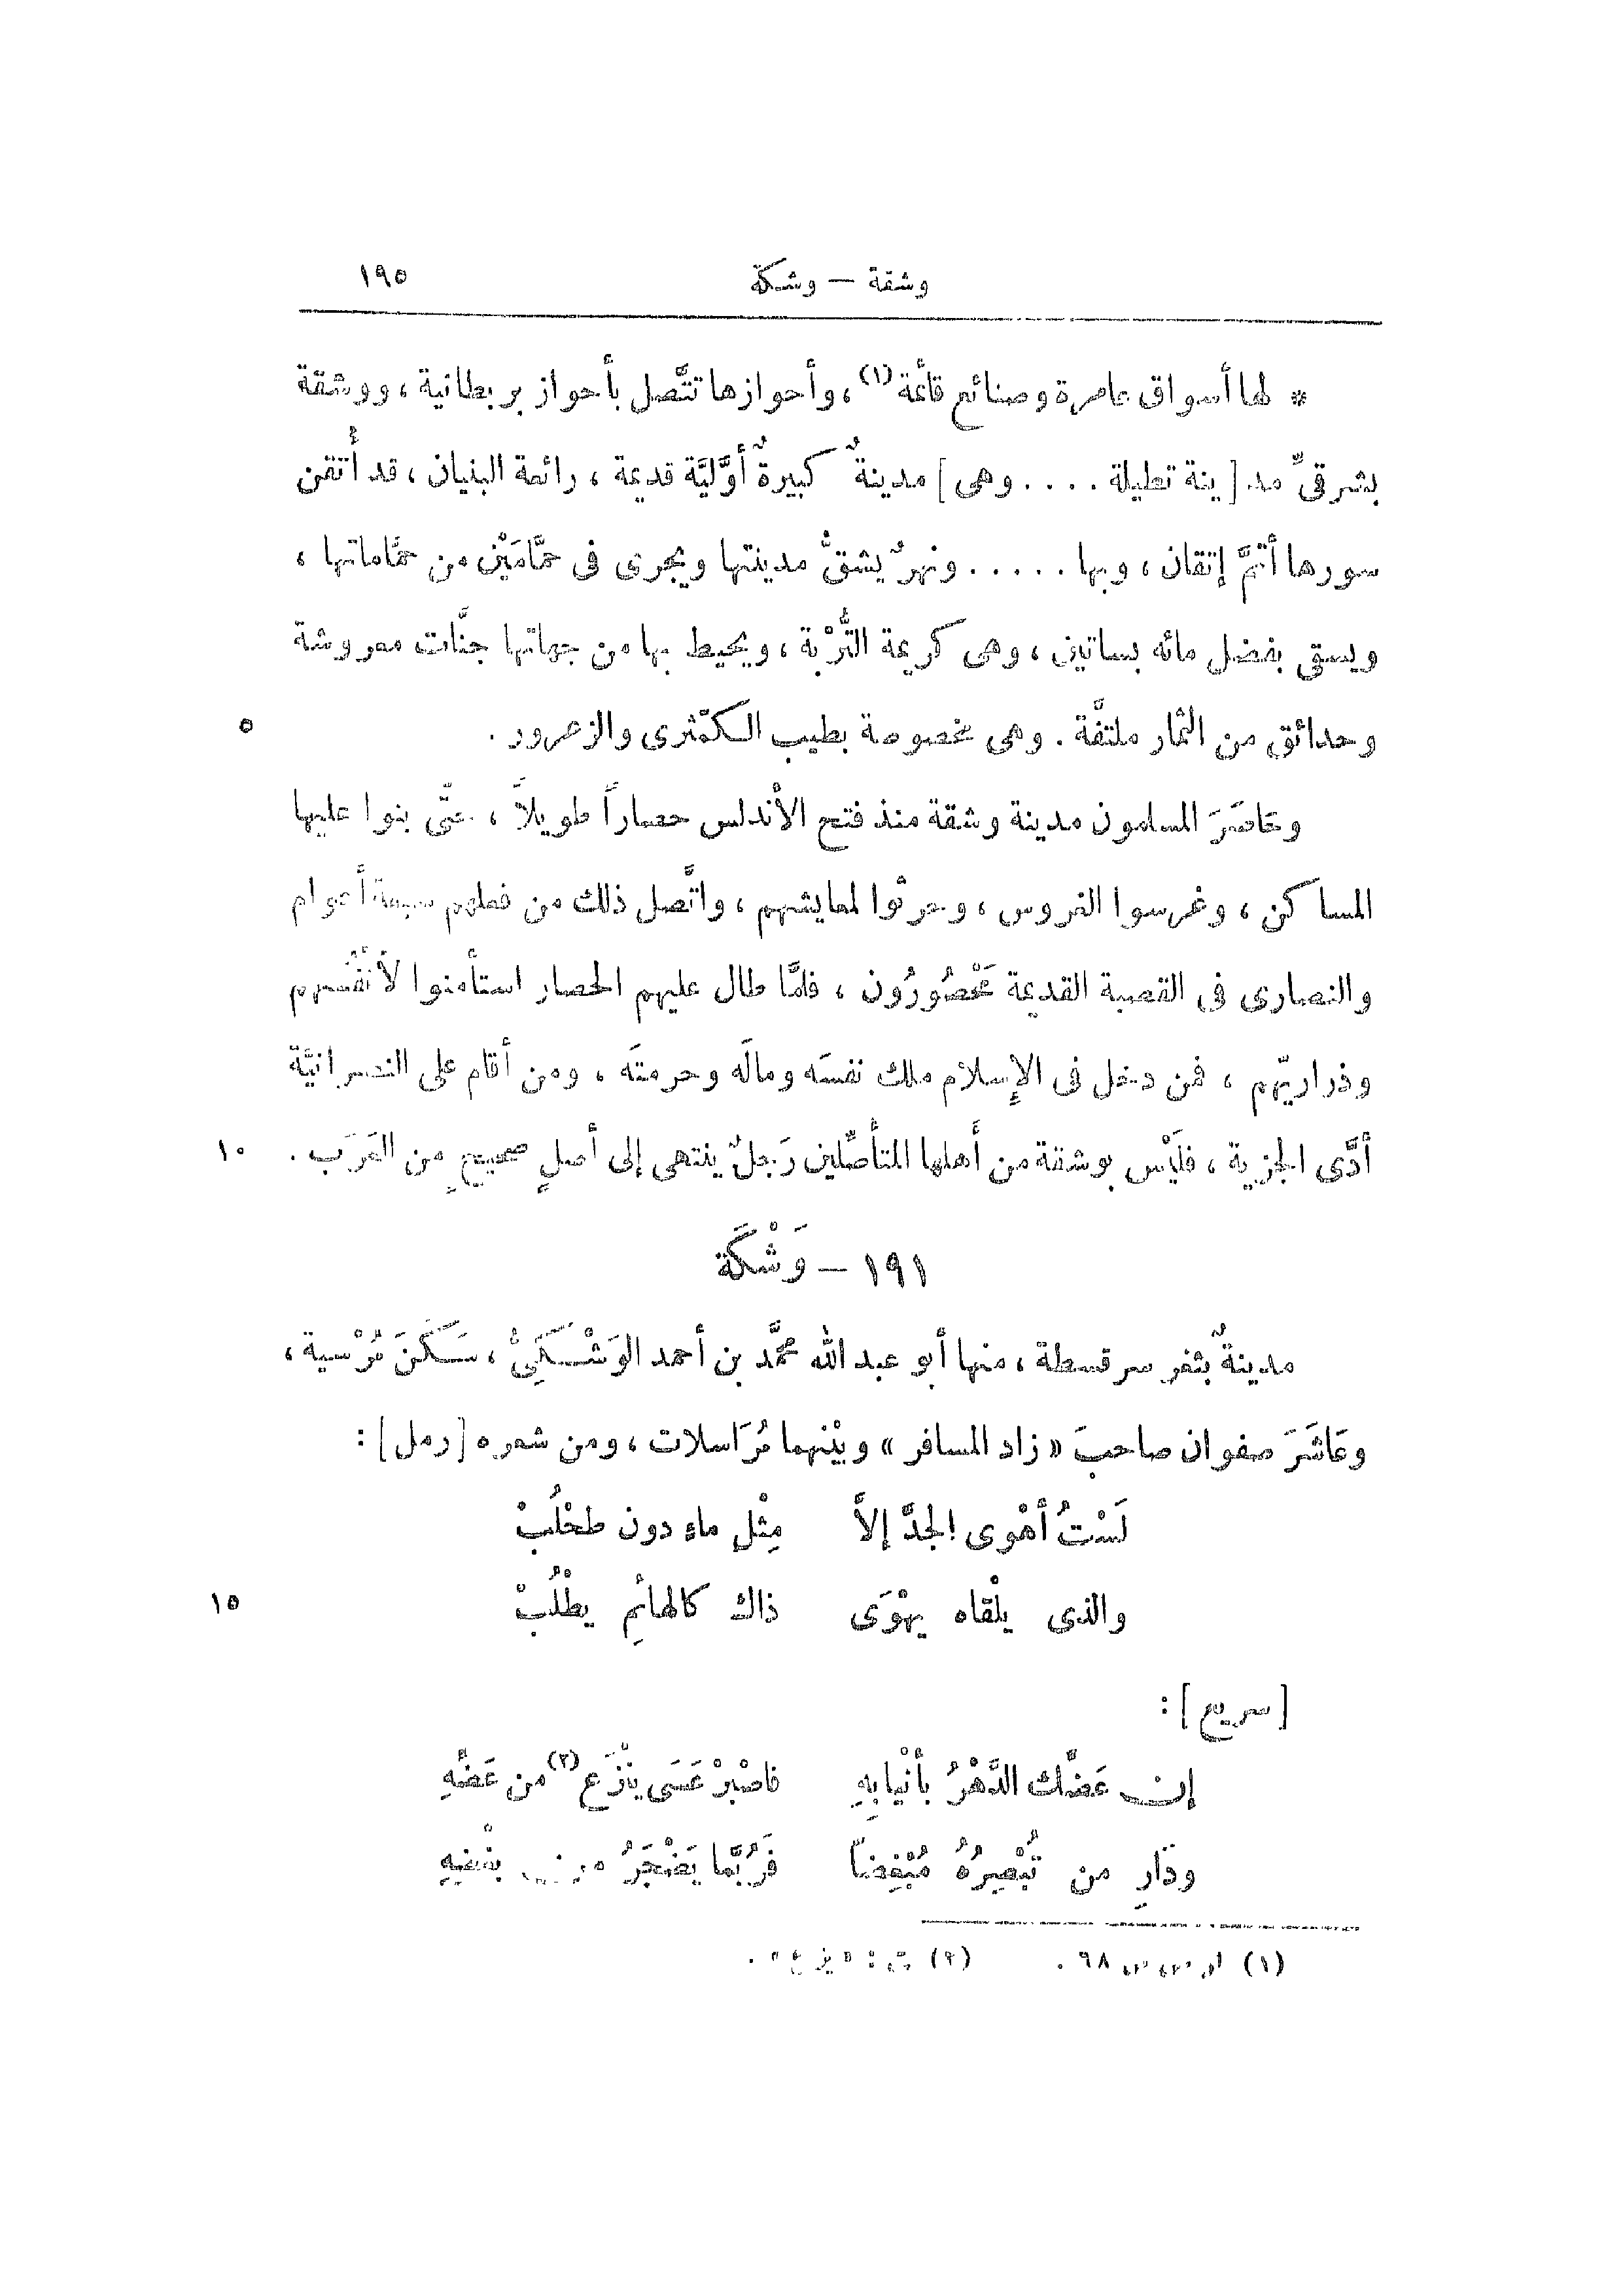 وشقة — وشكة ١٩٥
* لها أسواق عامرة وصنائع قائمة (١)، وأحوازها تتَّصل بأحواز بربطانية، ووشقة
بشرقىِّ مد[ينة تطيلة .... وهى] مدينةٌ كبيرةٌ أوَّليَّة قديمة، رائعة البنيان، قد أُتقن
سورها أتمَّ إتقان، وبها ..... ونهرٌ يشقُّ مدينتها ويجرى فى حمَّامَيْن من حمَّاماتها،
ويسقى بفضل مائه بساتين، وهى كريمة التُّرْبة، ويحيط بها من جهاتها جنَّات معروشة
وحدائق من الثمار ملتفَّة. وهى مخصوصة بطيب الكمّثرى والزعرور. ٥
وحَاصَرَ المسلمون مدينة وشقة منذ فتح الأندلس حصاراً طويلاً، حتّى بنوا عليها
المساكن، وغرسوا الغروس، وحرثوا لمعايشهم، واتَّصل ذلك من فعلهم سبعة أعوام
والنصارى فى القصبة القديمة مَحْصُورُون، فلمَّا طال عليهم الحصار استأمنوا لأنْفُسهم
وذراريّهم، فمن دخل فى الإسلام ملك نفسَه ومالَه وحرمتَه، ومن أقام على النصرانيَّة
أدَّى الجزية، فلَيْس بوشقة من أهلها المتأصِّلين رَجلٌ ينتهى إلى أصلٍ صحيحٍ من العَرَب. ١٠
١٩١ — وَشْكَة
مدينةٌ بثغر سرقسطة، منها أبو عبد الله محمَّد بن أحمد الوَشْكَىُّ، سَكَنَ مُرْسية،
وعَاشَرَ صفوان صاحبَ «زاد المسافر» وبيْنهما مُرَاسلات، ومن شعره [رمل]:
لَسْتُ أَهْوى الجدَّ إلاَّ مِثْل ماء دون طحْلُبْ
والذى يلْقاه يهْوَى ذاك كالهائمِ يطْلُبْ ١٥
[سريع]:
إن عَضَّك الدَّهْرُ بأنْيابِهِ فاصْبرْ عَسَى ينْزَع (٢) من عَضِّهِ
ودَارِ من تُبْصِرُهُ مُبْغِضاً فَرُبَّما يَضْجَرُ من بغْضِهِ
(١) ٦٨. (٢)